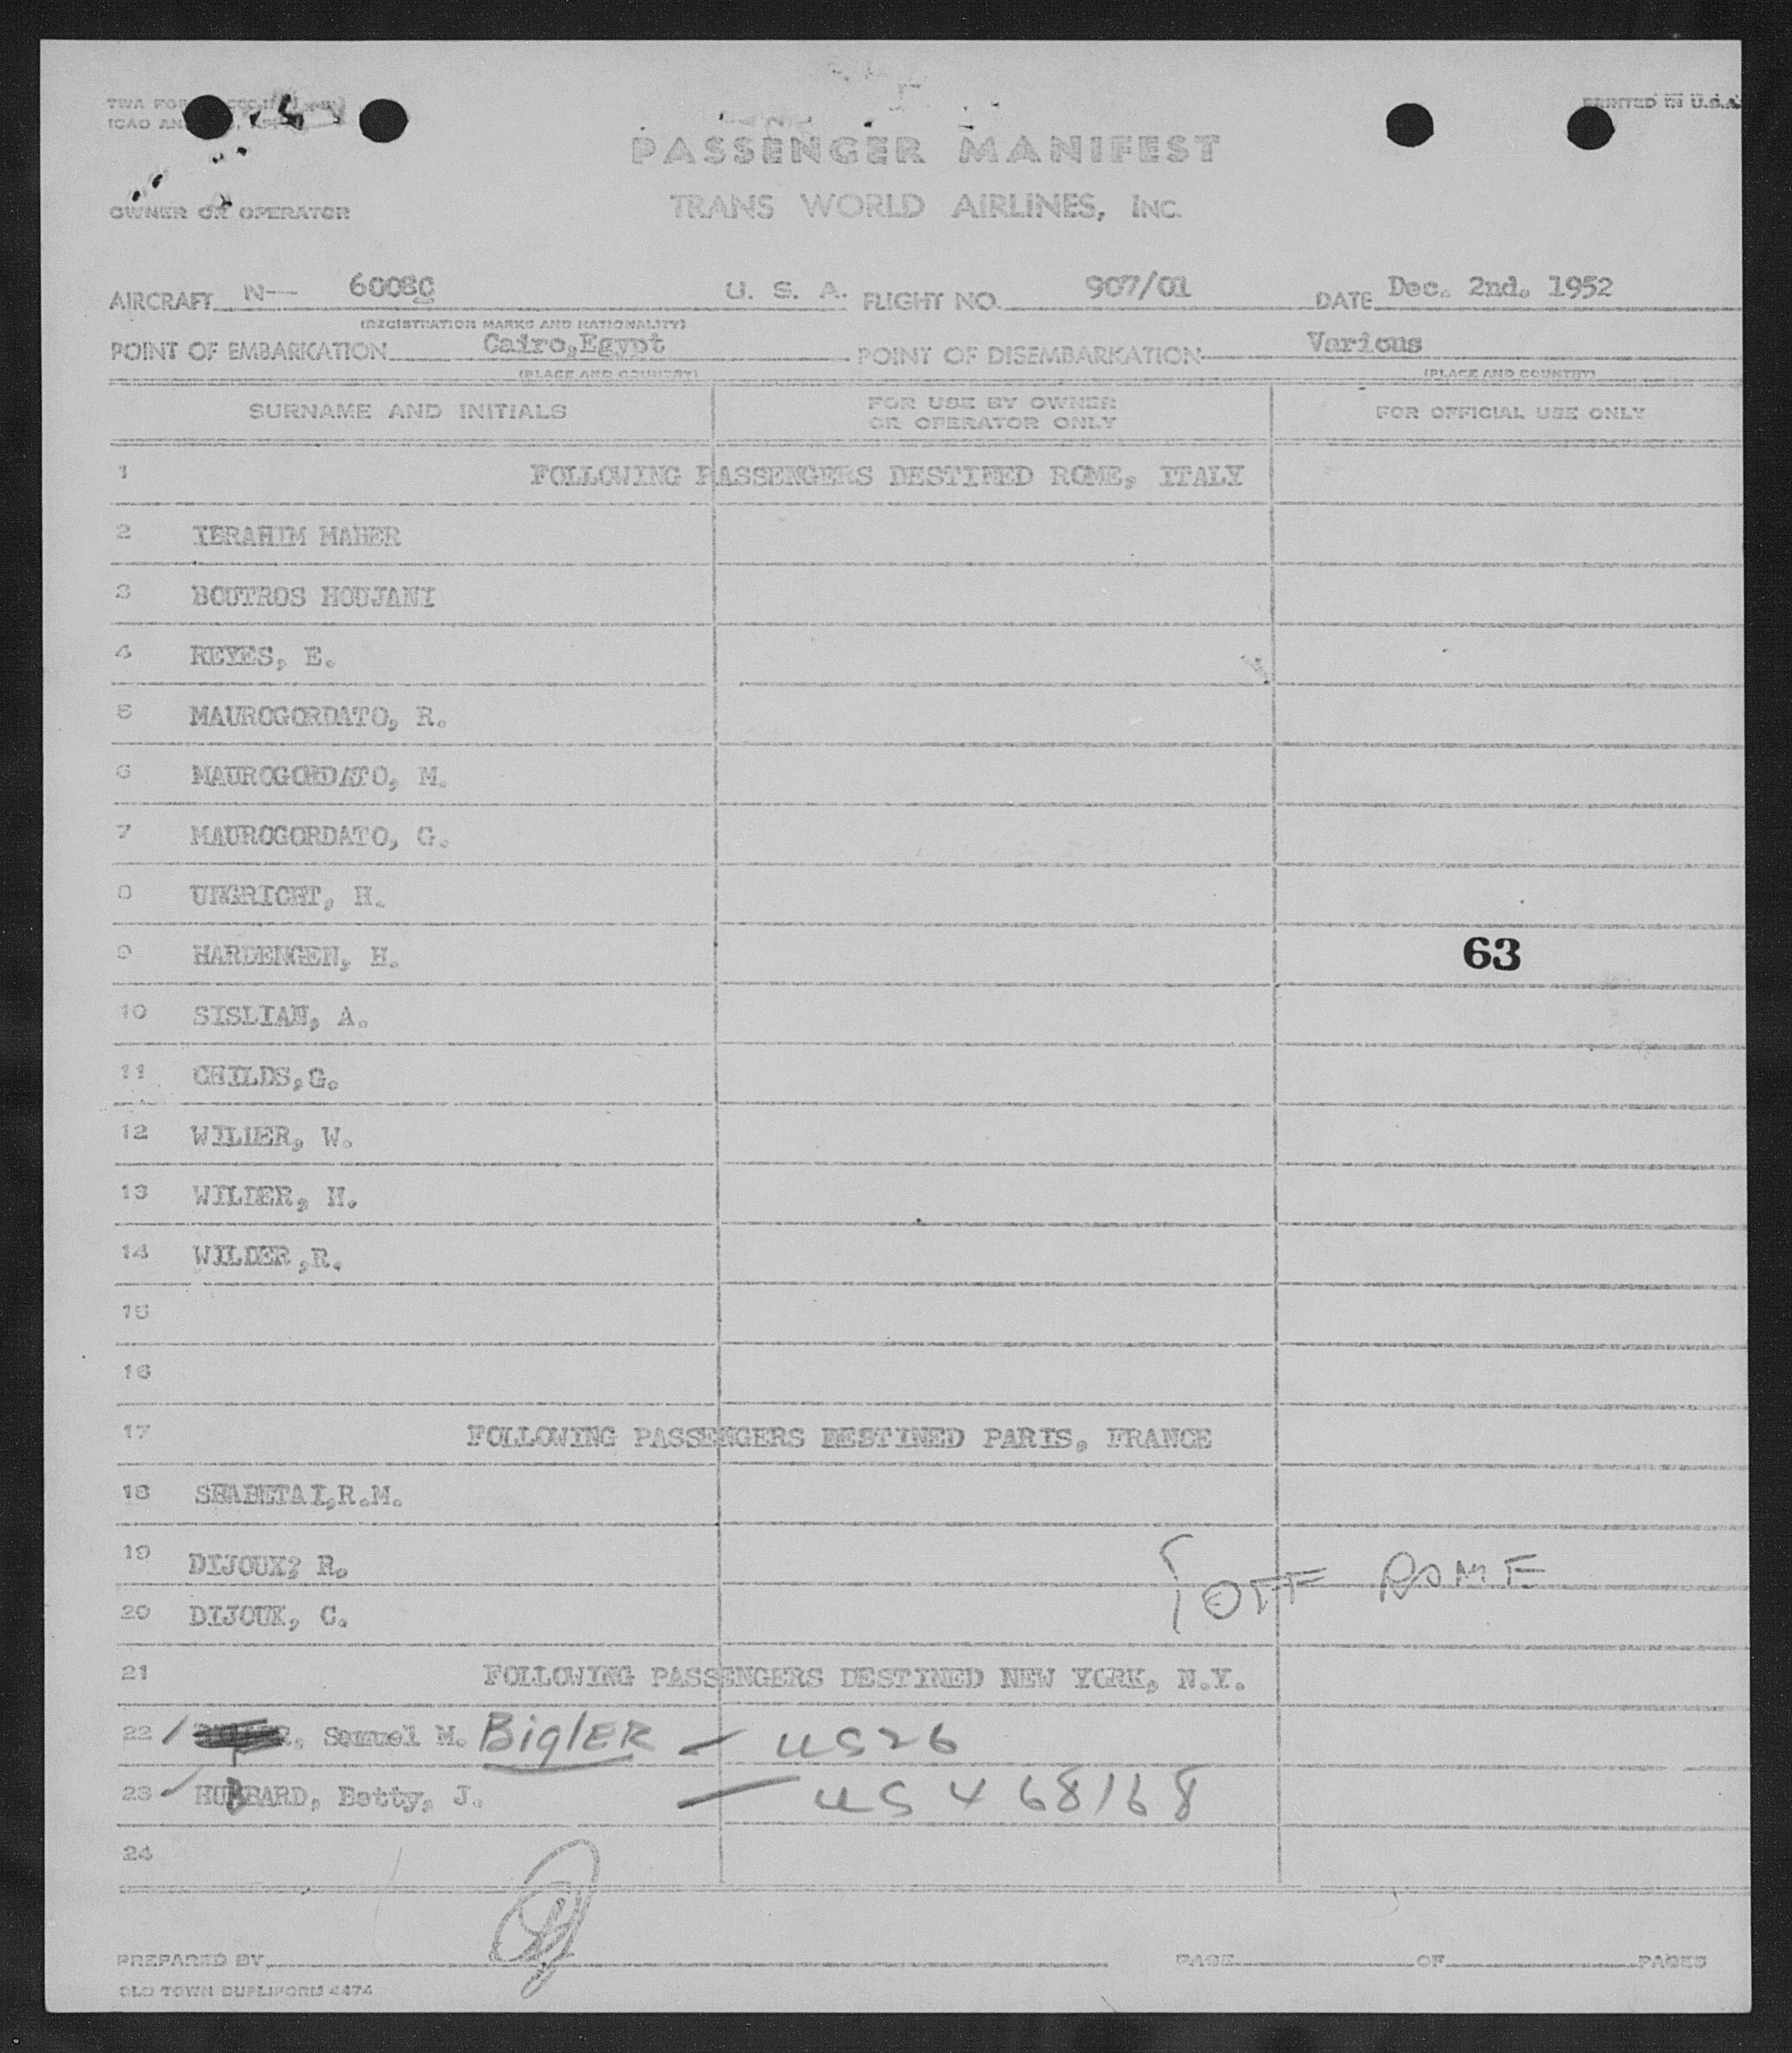 TWA FOR
ICAO AN
PRINTED IN U.S.A.
PASSENGER MANIFEST
OWNER OR OPERATOR
TRANS WORLD AIRLINES, INC.
AIRCRAFT N— 60080 U. S. A. FLIGHT NO. 907/01 DATE Dec. 2nd. 1952
(REGISTRATION MARKS AND NATIONALITY)
POINT OF EMBARKATION Cairo,Egypt POINT OF DISEMBARKATION Various
(PLACE AND COUNTRY) (PLACE AND COUNTRY)
SURNAME AND INITIALS FOR USE BY OWNER OR OPERATOR ONLY FOR OFFICIAL USE ONLY
1 FOLLOWING PASSENGERS DESTINED ROME, ITALY
2 IBRAHIM MAHER
3 BOUTROS HOUJANI
4 REYES, E.
5 MAUROGORDATO, R.
6 MAUROGORDATO, M.
7 MAUROGORDATO, G.
8 UNGRICHT, H.
9 HARDENGEN, H. 63
10 SISLIAN, A.
11 CHILDS,G.
12 WILDER, W.
13 WILDER, H.
14 WILDER ,R.
15
16
17 FOLLOWING PASSENGERS DESTINED PARIS, FRANCE
18 SHABETAI,R.M.
19 DIJOUX, R.
OFF ROME
20 DIJOUX, C.
21 FOLLOWING PASSENGERS DESTINED NEW YORK, N.Y.
22 R, Samuel M. BiglER - US26
23 HUBBARD, Betty, J. - US 4 68168
24
PREPARED BY PAGE OF PAGES
OLD TOWN DUPLIFORM 4474